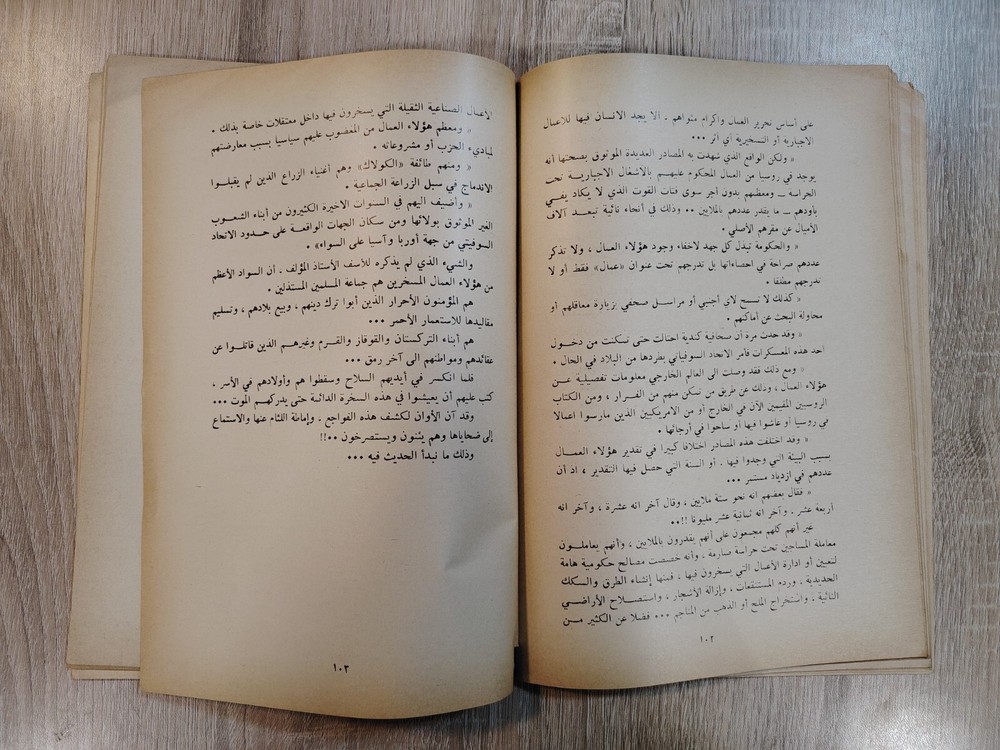 على أساس تحرير العمال واكرام مثواهم . ألا يجد الانسان فيها للاعمال
الاجبارية أو التسخيرية أي أثر ...
« ولكن الواقع الذي شهدت به المصادر العديدة الموثوق بصحتها أنه
يوجد في روسيا من العمال المحكوم عليهم بالاشغال الاجبارية تحت
الحراسة ــ ومعظمهم بدون أجر سوى فتات القوت الذي لا يكاد يفي
بأودهم ــ ما يقدر عددهم بالملايين .. وذلك في أنحاء نائية تبعد آلاف
الأميال عن مقرهم الأصلي .
« والحكومة تبذل كل جهد لاخفاء وجود هؤلاء العمال ، ولا تذكر
عددهم صراحة في احصاءاتها بل تدرجهم تحت عنوان «عمال» فقط أو لا
تدرجهم مطلقا .
« كذلك لا تسمح لاي أجنبي أو مراسل صحفي بزيارة معاقلهم أو
محاولة البحث عن أماكنهم .
« وقد حدث مرة أن صحافية كندية احتالت حتى تمكنت من دخول
احد هذه المعسكرات فأمر الاتحاد السوفياتي بطردها من البلاد في الحال .
« ومع ذلك فقد وصلت الى العالم الخارجي معلومات تفصيلية عن
هؤلاء العمال ، وذلك عن طريق من تمكن منهم من الفرار ، ومن الكتاب
الروسيين المقيمين الآن في الخارج أو من الامريكيين الذين مارسوا اعمالا
في روسيا أو عاشوا فيها أو ساحوا في أرجائها .
« وقد اختلفت هذه المصادر اختلافا كبيرا في تقدير هؤلاء العمال
بسبب البيئة التي وجدوا فيها . أو السنة التي حصل فيها التقدير ، اذ أن
عددهم في ازدياد مستمر ...
« فقال بعضهم انه نحو ستة ملايين ، وقال آخر انه عشرة ، وآخر انه
أربعة عشر . وآخر انه ثمانية عشر مليونا !!..
غير أنهم كلهم مجمعون على أنهم يقدرون بالملايين ، وأنهم يعاملون
معاملة المساجين تحت حراسة صارمة ، وأنه خصصت مصالح حكومية هامة
لتعيين أو ادارة الأعمال التي يسخرون فيها ، فمنها إنشاء الطرق والسكك
الحديدية ، وردم المستنقعات ، وإزالة الأشجار ، واستصلاح الأراضي
النائية ، واستخراج الملح أو الذهب من المناجم ... فضلا عن الكثير من
١٠٢
الاعمال الصناعية الثقيلة التي يسخرون فيها داخل معتقلات خاصة بذلك .
« ومعظم هؤلاء العمال من المغضوب عليهم سياسيا بسبب معارضتهم
لمباديء الحزب أو مشروعاته .
« ومنهم طائفة «الكولاك» وهم أغنياء الزراع الذين لم يقبلوا
الاندماج في سبل الزراعة الجماعية .
« وأضيف اليهم في السنوات الاخيرة الكثيرون من أبناء الشعوب
الغير الموثوق بولائها ومن سكان الجهات الواقعة على حدود الاتحاد
السوفيتي من جهة أوربا وآسيا على السواء» .
والشيء الذي لم يذكره للأسف الأستاذ المؤلف . أن السواد الأعظم
من هؤلاء العمال المسخرين هم جماعة المسلمين المستذلين .
هم المؤمنون الأحرار الذين أبوا ترك دينهم . وبيع بلادهم ، وتسليم
مقاليدها للاستعمار الأحمر ...
هم أبناء التركستان والقوقاز والقرم وغيرهم الذين قاتلوا عن
عقائدهم ومواطنهم الى آخر رمق ...
فلما انكسر في أيديهم السلاح وسقطوا هم وأولادهم في الأسر .
كتب عليهم أن يعيشوا في هذه السخرة الدائمة حتى يدركهم الموت ...
وقد آن الأوان لكشف هذه الفواجع . وإماطة اللثام عنها والاستماع
إلى ضحاياها وهم يئنون ويستصرخون ..!!
وذلك ما نبدأ الحديث فيه ...
١٠٣